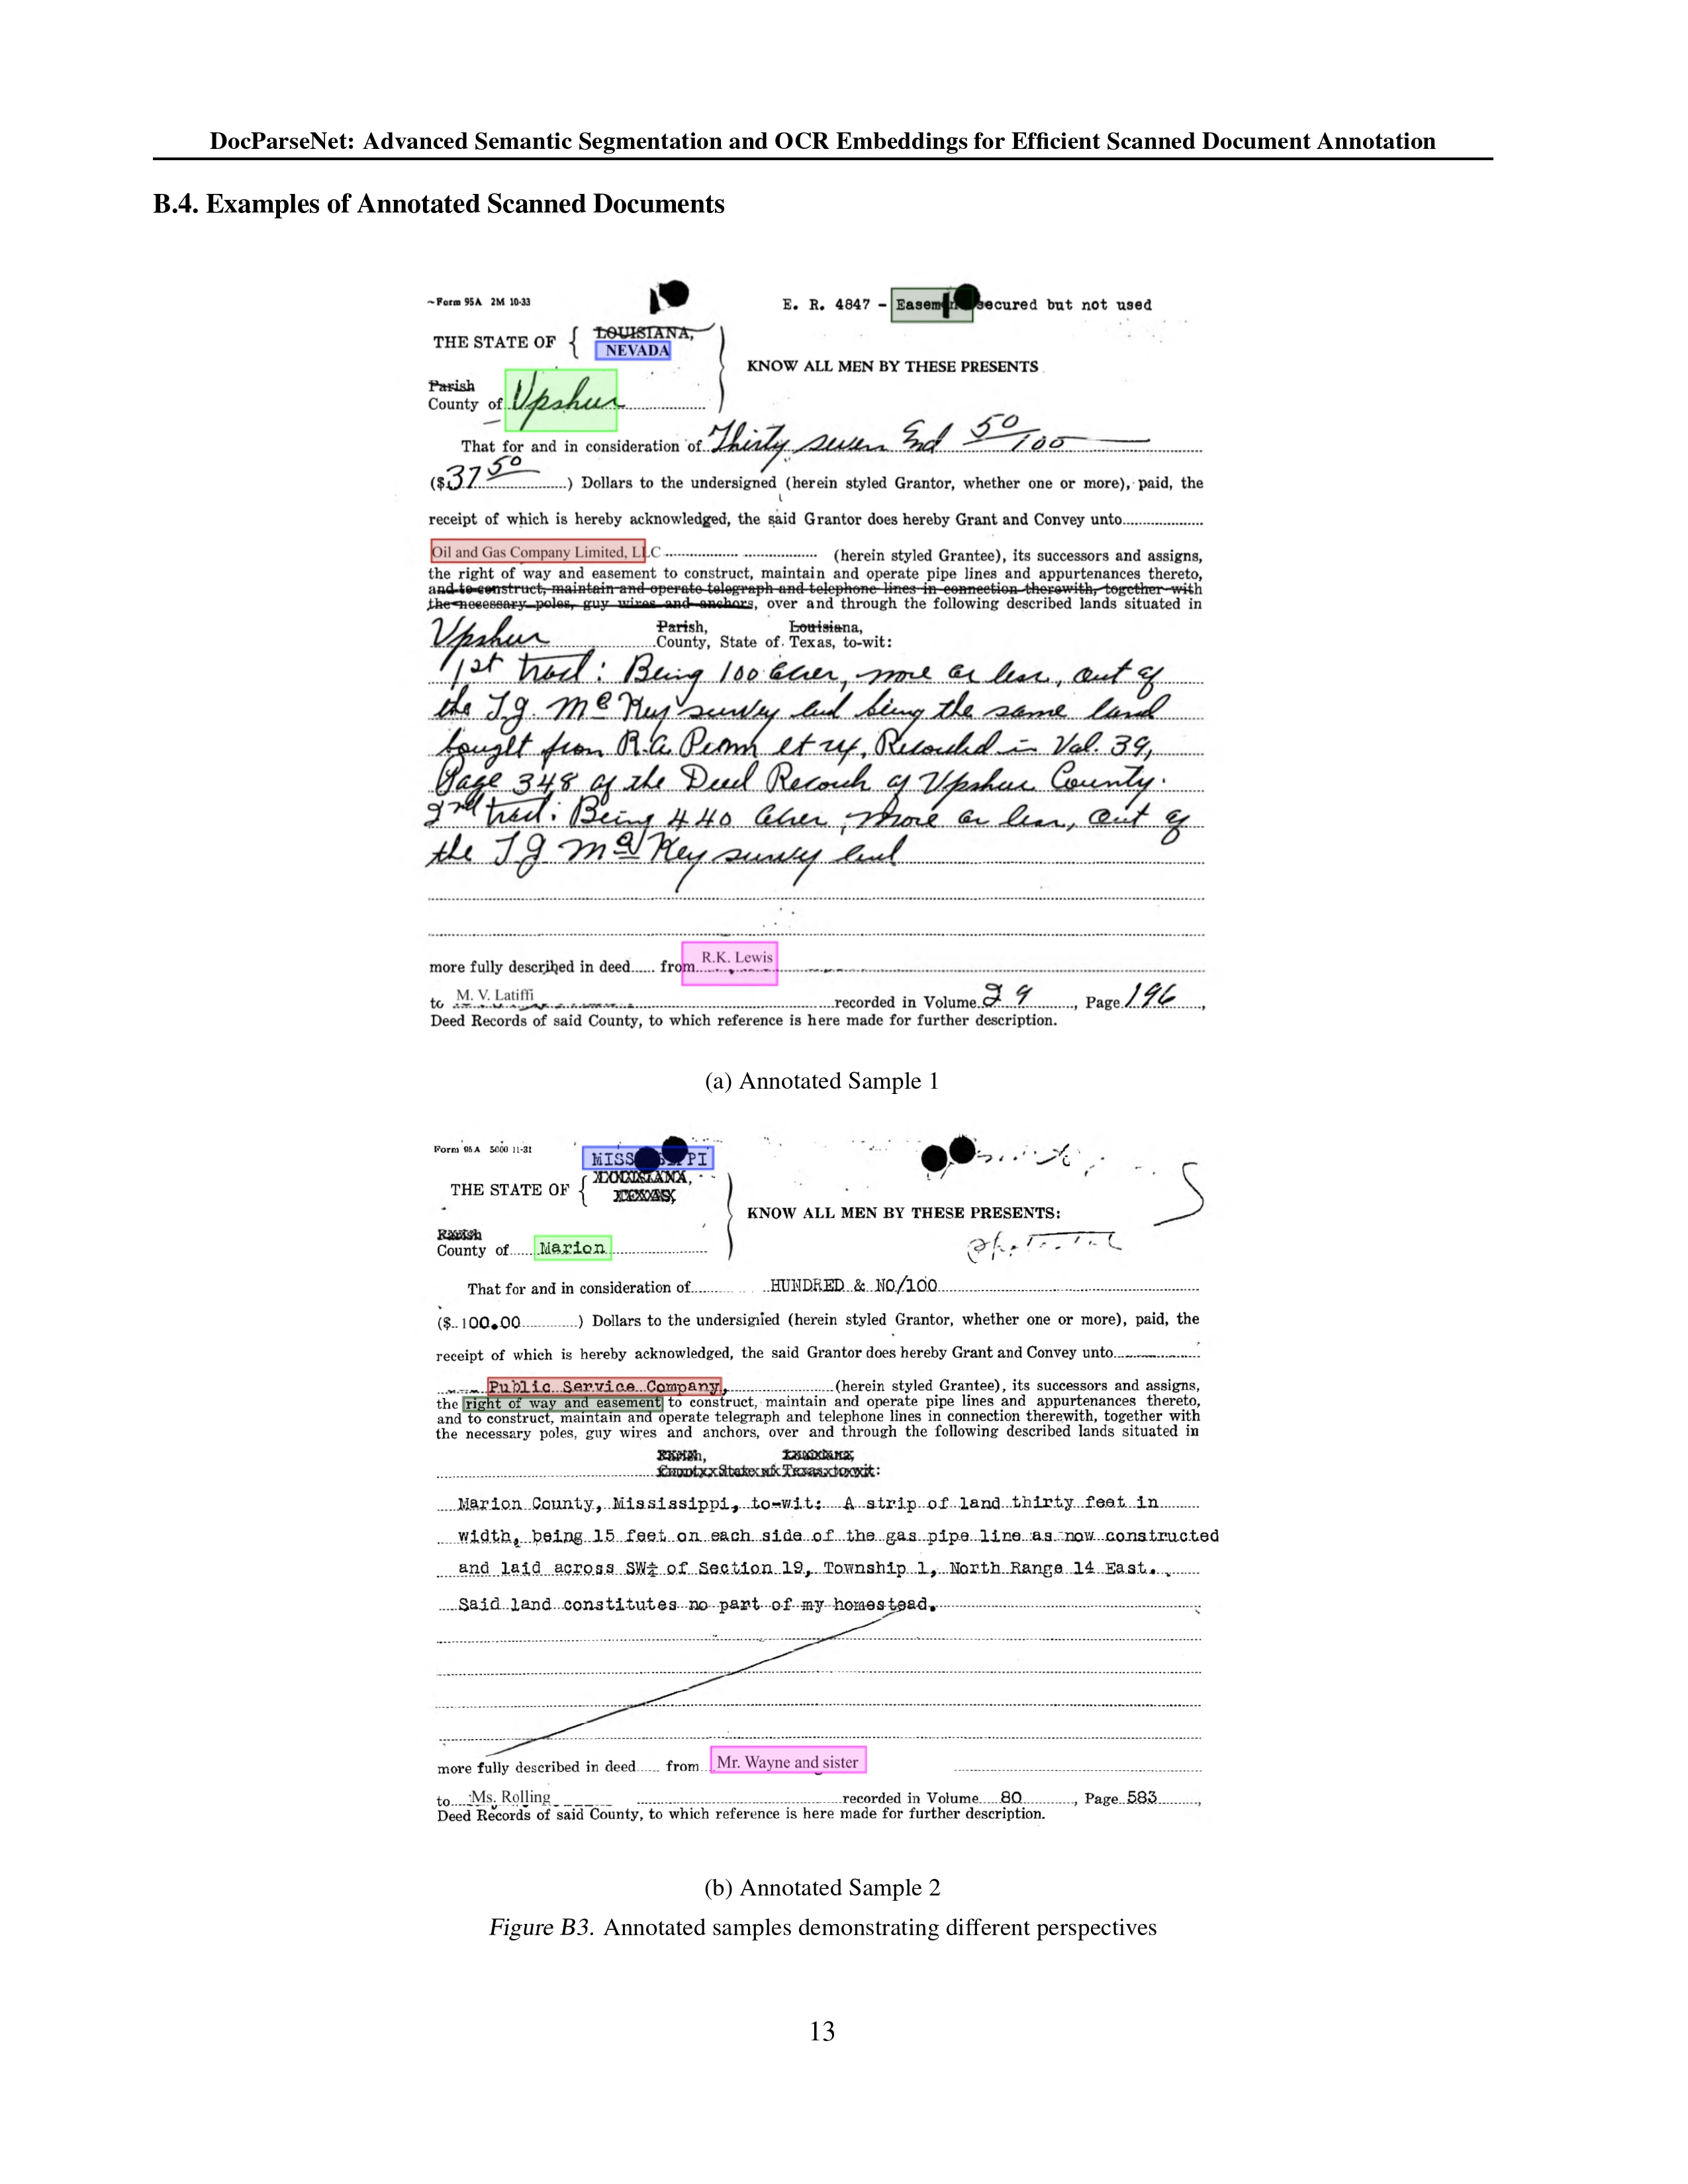 DocParseNet: Advanced Semantic Segmentation and OCR Embeddings for Efficient Scanned Document Annotation
B.4. Examples of Annotated Scanned Documents
~Form 95A 2M 10-33
E. R. 4847 - Easem secured but not used
THE STATE OF { LOUISIANA,
NEVADA
KNOW ALL MEN BY THESE PRESENTS
Parish
County of Upshur
That for and in consideration of Thirty seven and 50/100
($ 37 50 ) Dollars to the undersigned (herein styled Grantor, whether one or more), paid, the
receipt of which is hereby acknowledged, the said Grantor does hereby Grant and Convey unto
Oil and Gas Company Limited, LLC (herein styled Grantee), its successors and assigns,
the right of way and easement to construct, maintain and operate pipe lines and appurtenances thereto,
and to construct, maintain and operate telegraph and telephone lines in connection therewith, together with
the necessary poles, guy wires and anchors, over and through the following described lands situated in
Parish, Louisiana,
Upshur County, State of Texas, to-wit:
1st tract: Being 100 acres, more or less, out of
the McKey survey and being the same land
bought from R.A. et ux, Recorded in Vol. 39,
Page 348 of the Deed Records of Upshur County.
2nd tract: Being 440 acres, more or less, out of
the McKey survey and
more fully described in deed from R.K. Lewis
to M. V. Latiffi recorded in Volume 29, Page 196,
Deed Records of said County, to which reference is here made for further description.
(a) Annotated Sample 1
Form 95A 5000 11-31
MISS PI
LOUISIANA,
THE STATE OF { TEXAS,
KNOW ALL MEN BY THESE PRESENTS:
Parish
County of Marion
That for and in consideration of HUNDRED & NO/100
($ 100.00 ) Dollars to the undersigned (herein styled Grantor, whether one or more), paid, the
receipt of which is hereby acknowledged, the said Grantor does hereby Grant and Convey unto
Public Service Company, (herein styled Grantee), its successors and assigns,
the right of way and easement to construct, maintain and operate pipe lines and appurtenances thereto,
and to construct, maintain and operate telegraph and telephone lines in connection therewith, together with
the necessary poles, guy wires and anchors, over and through the following described lands situated in
Parish, Louisiana,
County, State of Texas, to-wit:
Marion County, Mississippi, to-wit: A strip of land thirty feet in
width, being 15 feet on each side of the gas pipe line as now constructed
and laid across SW¼ of Section 19, Township 1, North Range 14 East.
Said land constitutes no part of my homestead.
more fully described in deed from Mr. Wayne and sister
to Ms. Rolling recorded in Volume 80, Page 583,
Deed Records of said County, to which reference is here made for further description.
(b) Annotated Sample 2
Figure B3. Annotated samples demonstrating different perspectives
13